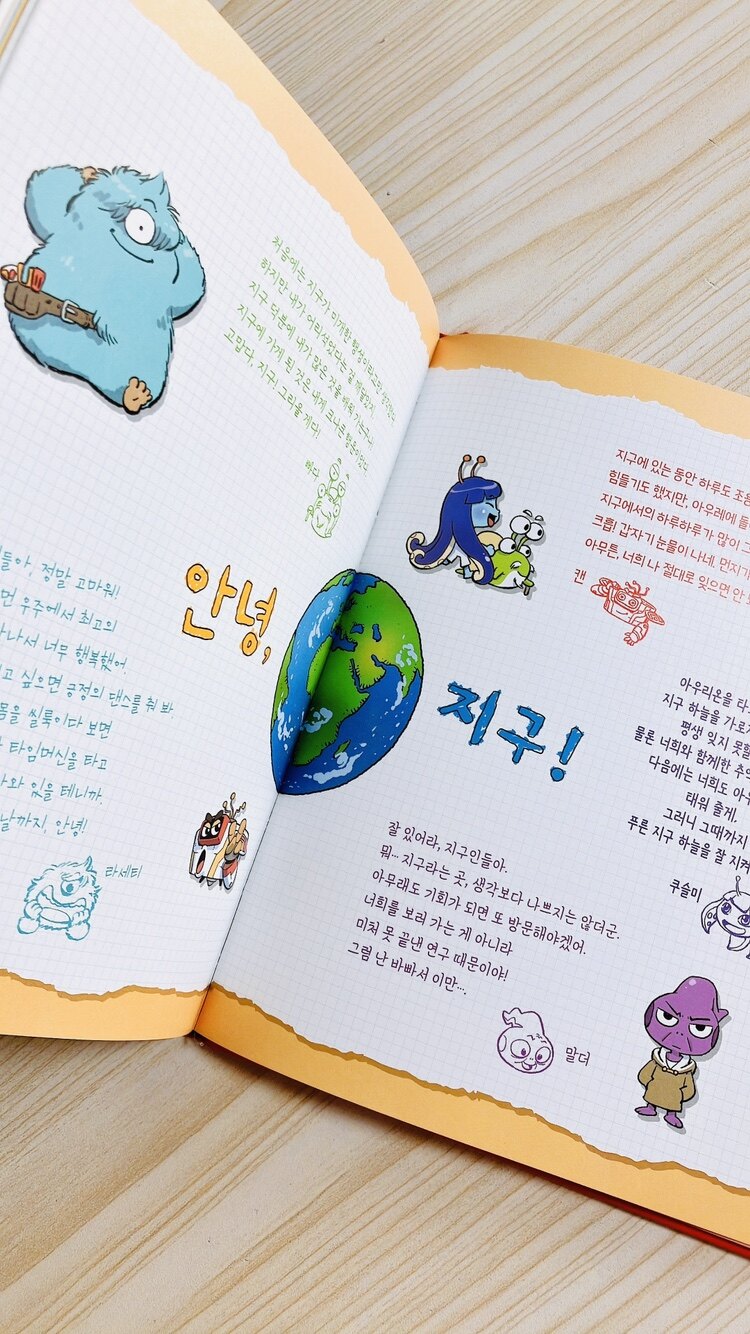 처음에는 지구가 미개한 행성이라고만 생각했는데
하지만 내가 어리석었다는 걸 깨달았지.
지구 덕분에 내가 많은 것을 배워 가는구나!
지구에 가게 된 것은 내게 크나큰 행운이었다.
고맙다, 지구! 그리울 게다!
빠다
들아, 정말 고마워!
면 우주에서 최고의
나서 너무 행복했어.
고 싶으면 긍정의 댄스를 춰 봐.
몸을 씰룩이다 보면
타임머신을 타고
와 있을 테니까.
날까지, 안녕!
타세티
안녕,
지구!
지구에 있는 동안 하루도 조용
힘들기도 했지만, 아우레에 돌
지구에서의 하루하루가 많이 그
크흡! 갑자기 눈물이 나네. 먼지가
아무튼, 너희 나 절대로 잊으면 안
캔
아우리온을 타고
지구 하늘을 가로
평생 잊지 못할
물론 너희와 함께한 추억
다음에는 너희도 아우
태워 줄게.
그러니 그때까지
푸른 지구 하늘을 잘 지켜
쿠슬미
잘 있어라, 지구인들아.
뭐… 지구라는 곳, 생각보다 나쁘지는 않더군.
아무래도 기회가 되면 또 방문해야겠어.
너희를 보러 가는 게 아니라
미처 못 끝낸 연구 때문이야!
그럼 난 바빠서 이만….
말더